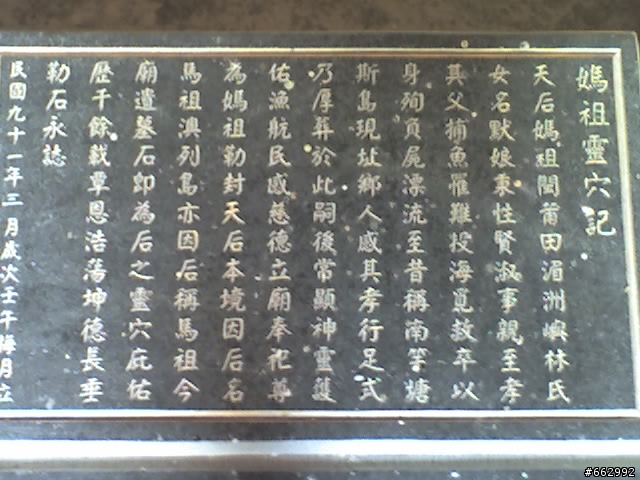 媽祖靈穴記
天后媽祖閩莆田湄洲嶼林氏
女名默娘秉性賢淑事親至孝
其父捕魚罹難投海覓救卒以
身殉負屍漂流至昔稱南竿塘
斯島現址鄉人感其孝行足式
乃厚葬於此嗣後常顯神靈護
佑漁航民感慈德立廟奉祀尊
為媽祖勒封天后本境因后名
馬祖澳列島亦因后稱馬祖今
廟遺墓石即為后之靈穴庇佑
歷千餘載覃恩浩蕩坤德長垂
勒石永誌
民國九十一年三月歲次壬午梅月立
#662992